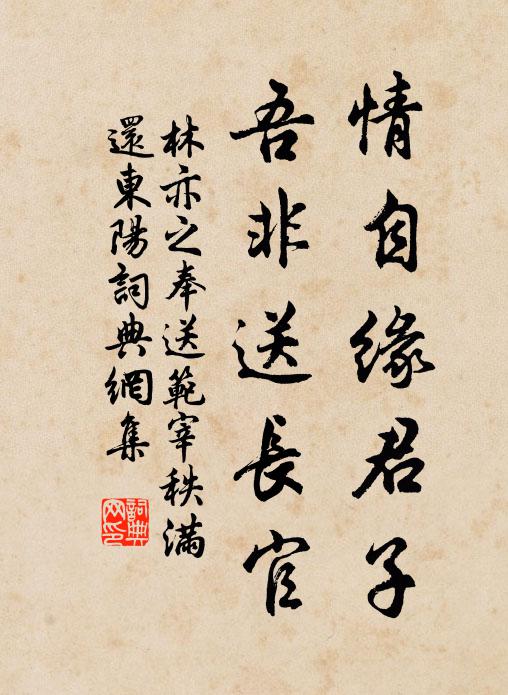 情自緣君子
吾非送長官
林亦之奉送範宰秩滿
還東陽詞典網集
詞典网印